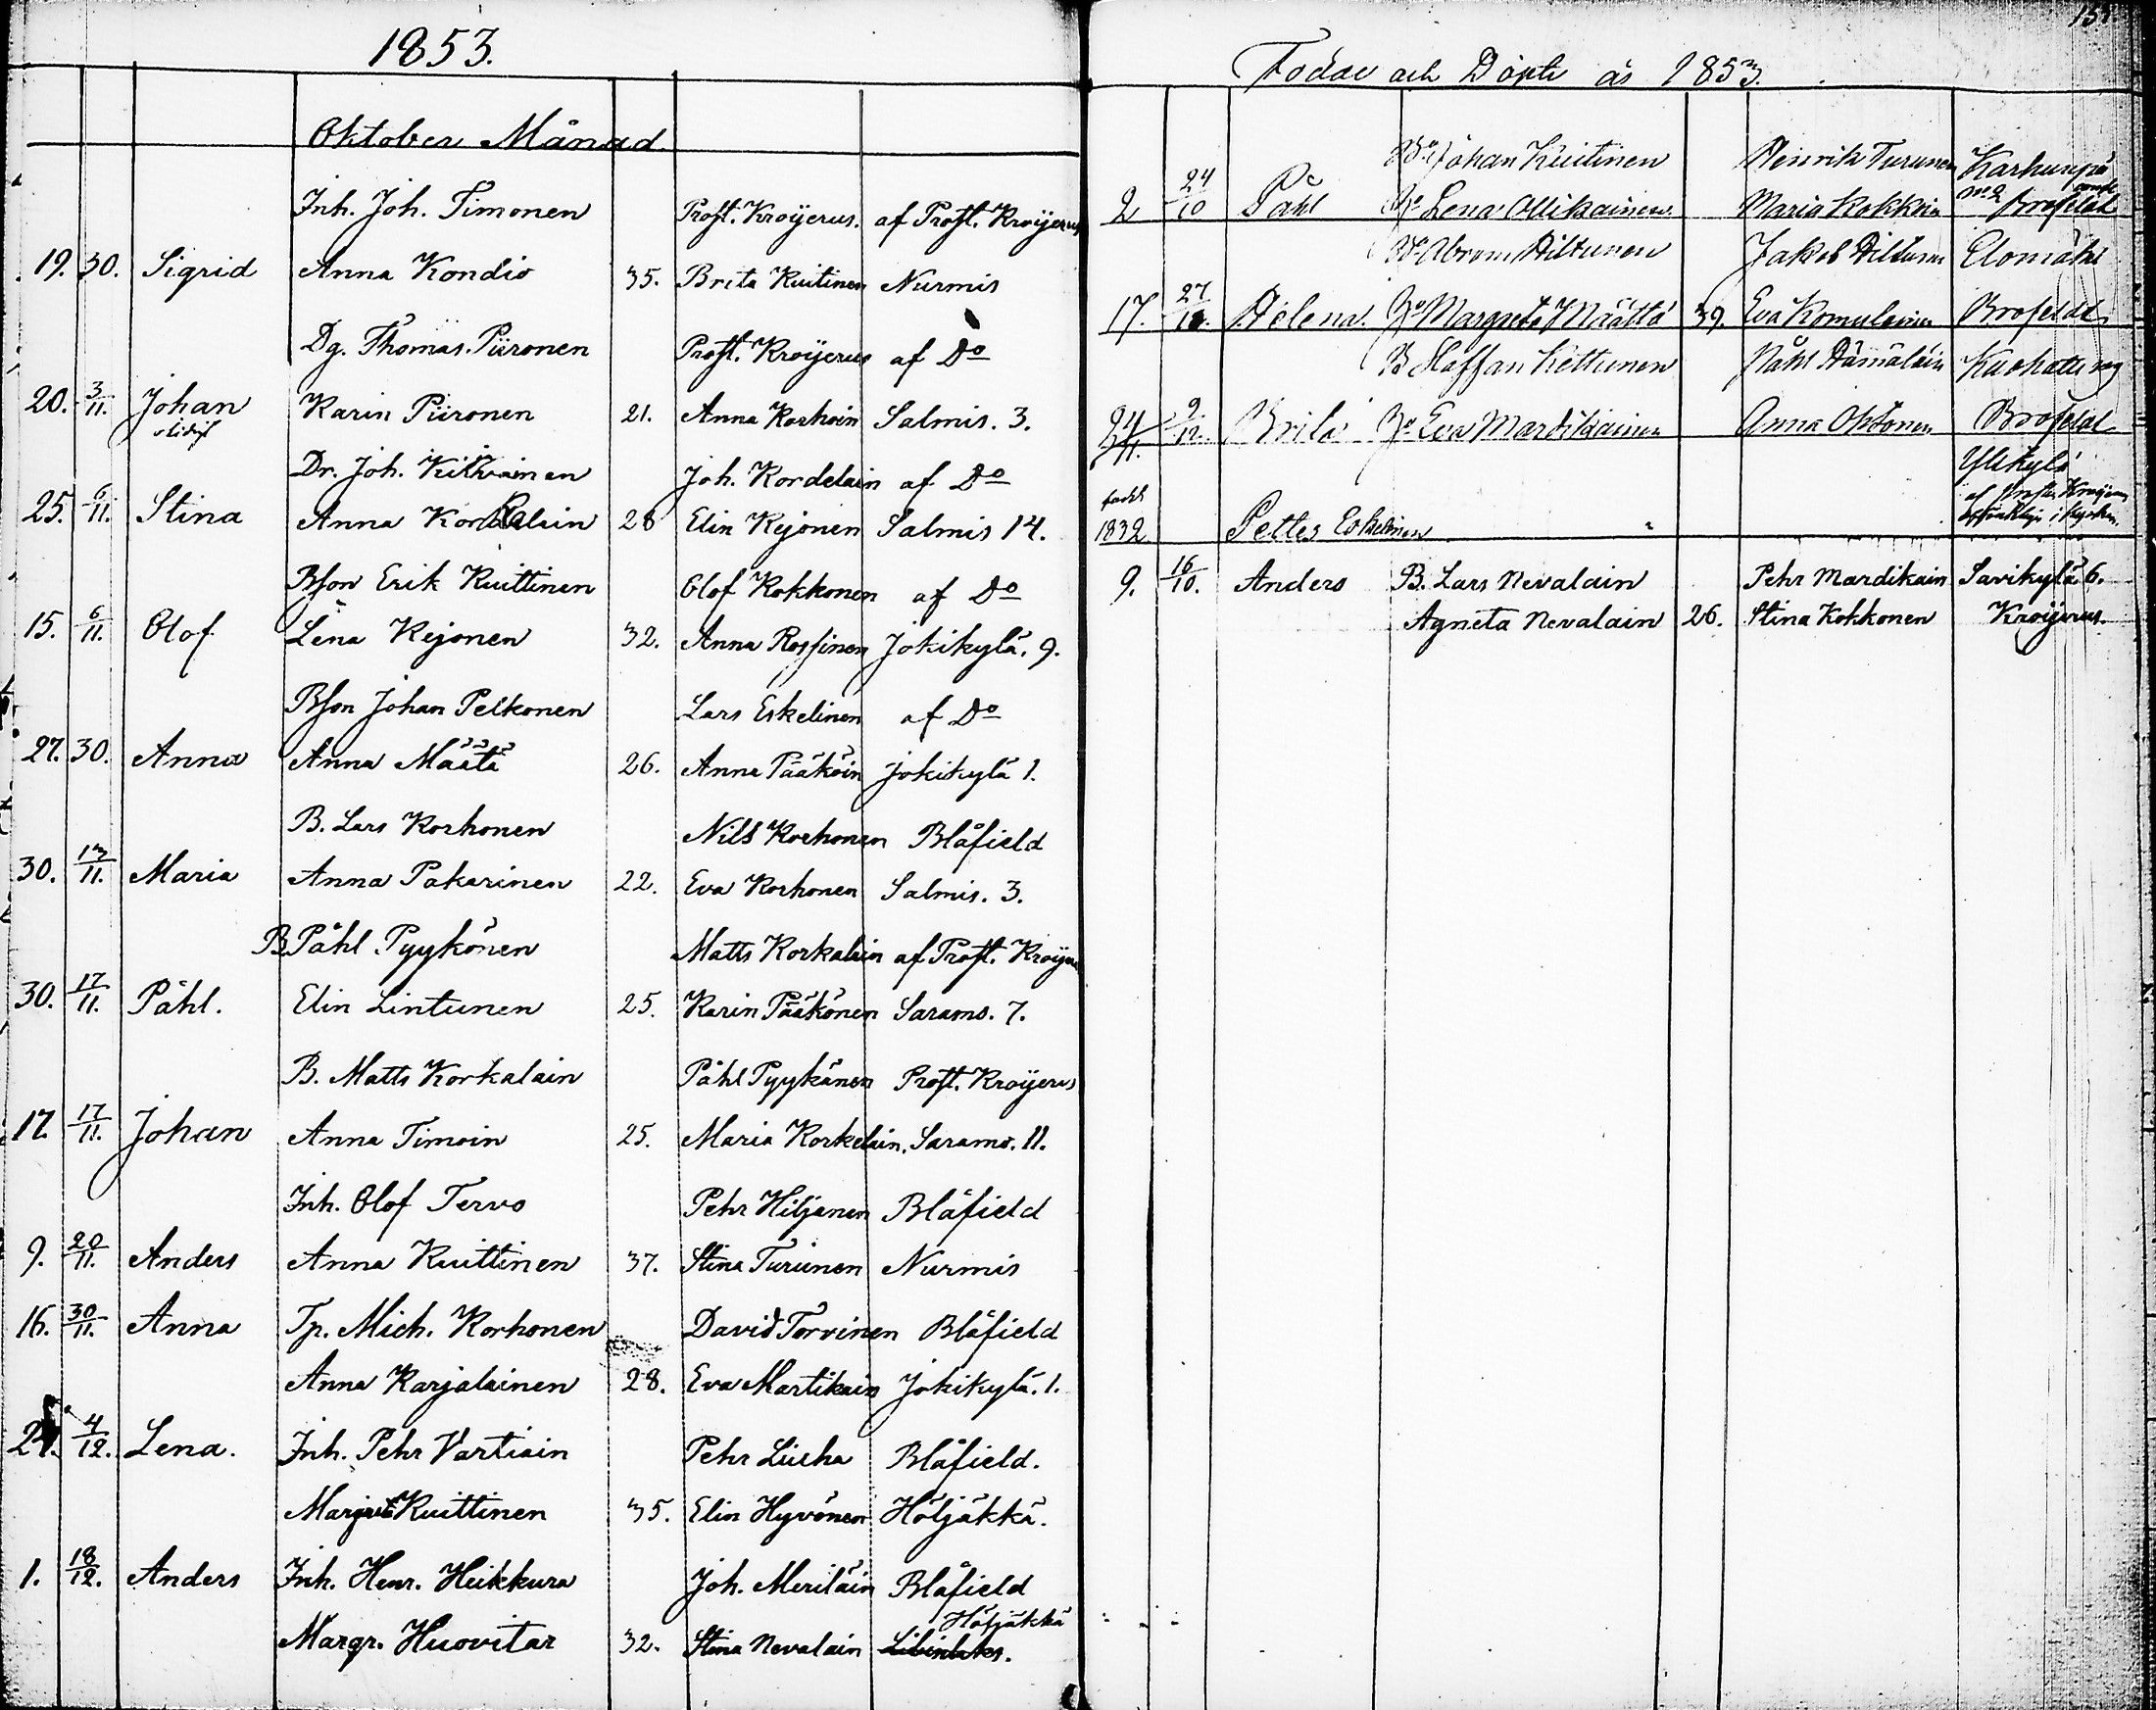 1853.
Oktober Månad
Inh. Joh. Timonen Prost. Kroijerus. af Prost. Kroijerus
19. 30. Sigrid Anna Kondio 35. Brita Kuitinen Nurmis
Dg. Thomas Piironen Prost. Kroijerus af Do
20. 3/11. Johan Karin Piironen 21. Anna Korhoin Salmis. 3.
Dr. Joh. Kilvainen Joh. Kordelain af Do
25. 6/11. Stina Anna Kordelain 28 Elin Kejonen Salmis 14.
Bson Erik Kuittinen Olof Kokkonen af Do
15. 6/11. Olof Lena Kejonen 32. Anna Rossinen Jokikylä. 9.
Bson Johan Pelkonen Lars Eskelinen af Do
27. 30. Anna Anna Määtä 26. Anna Pääköin Jokikylä 1.
B. Lars Korhonen Nils Korhonen Blåfield
30. 13/11. Maria Anna Pakarinen 22. Eva Korhonen Salmis. 3.
B. Påhl Pyykönen Matts Korkalain af Prost. Kroijerus
30. 17/11. Påhl. Elin Lintunen 25. Karin Pääkönen Saramo. 7.
B. Matts Korkalain Påhl Pyykänen Prost. Kroijerus
17. 17/11. Johan Anna Timoin 25. Maria Korkelain. Saramo. 11.
Inh. Olof Tervo Pehr Hiljanen Blåfield
9. 20/11. Anders Anna Kuittinen 37. Stina Turunen Nurmis
16. 30/11. Anna Tp. Mich. Korhonen David Torvinen Blåfield
Anna Karjalainen 28. Eva Martikain Jokikylä. 1.
4/12. Lena. Inh. Pehr Vartiain Pehr Liuha Blåfield.
Margret Kuittinen 35. Elin Hyvönen Höljäkkä.
1. 18/12. Anders Inh. Henr. Heikkura Joh. Meriläin Blåfield
Höljäkkä
Margr. Huovitar 32. Stina Nevalain
Födde och Döpte år 1853.
Johan Kuitinen Henrik Turunen
2 24/10 Påhl Lena Ollikainen Maria Kokkoin No 2 Brofeldt
Abrom Hiltunen Jakob Hiltunen
17. 27/10. Helena. Margreta Määttä 39. Eva Komulainen Brofeldt
B Staffan Kettunen Påhl Hämäläin
9/12. Brita Eva Mardikainen Anna Ohtonen Brofeldt
Ylikylä
af Prost. Kroijerus
född
1832 Petter Eskelinen
9. 16/10. Anders B. Lars Nevalain Pehr Mardikain Savikylä 6.
Agneta Nevalain 26. Stina Kokkonen Kroijerus.